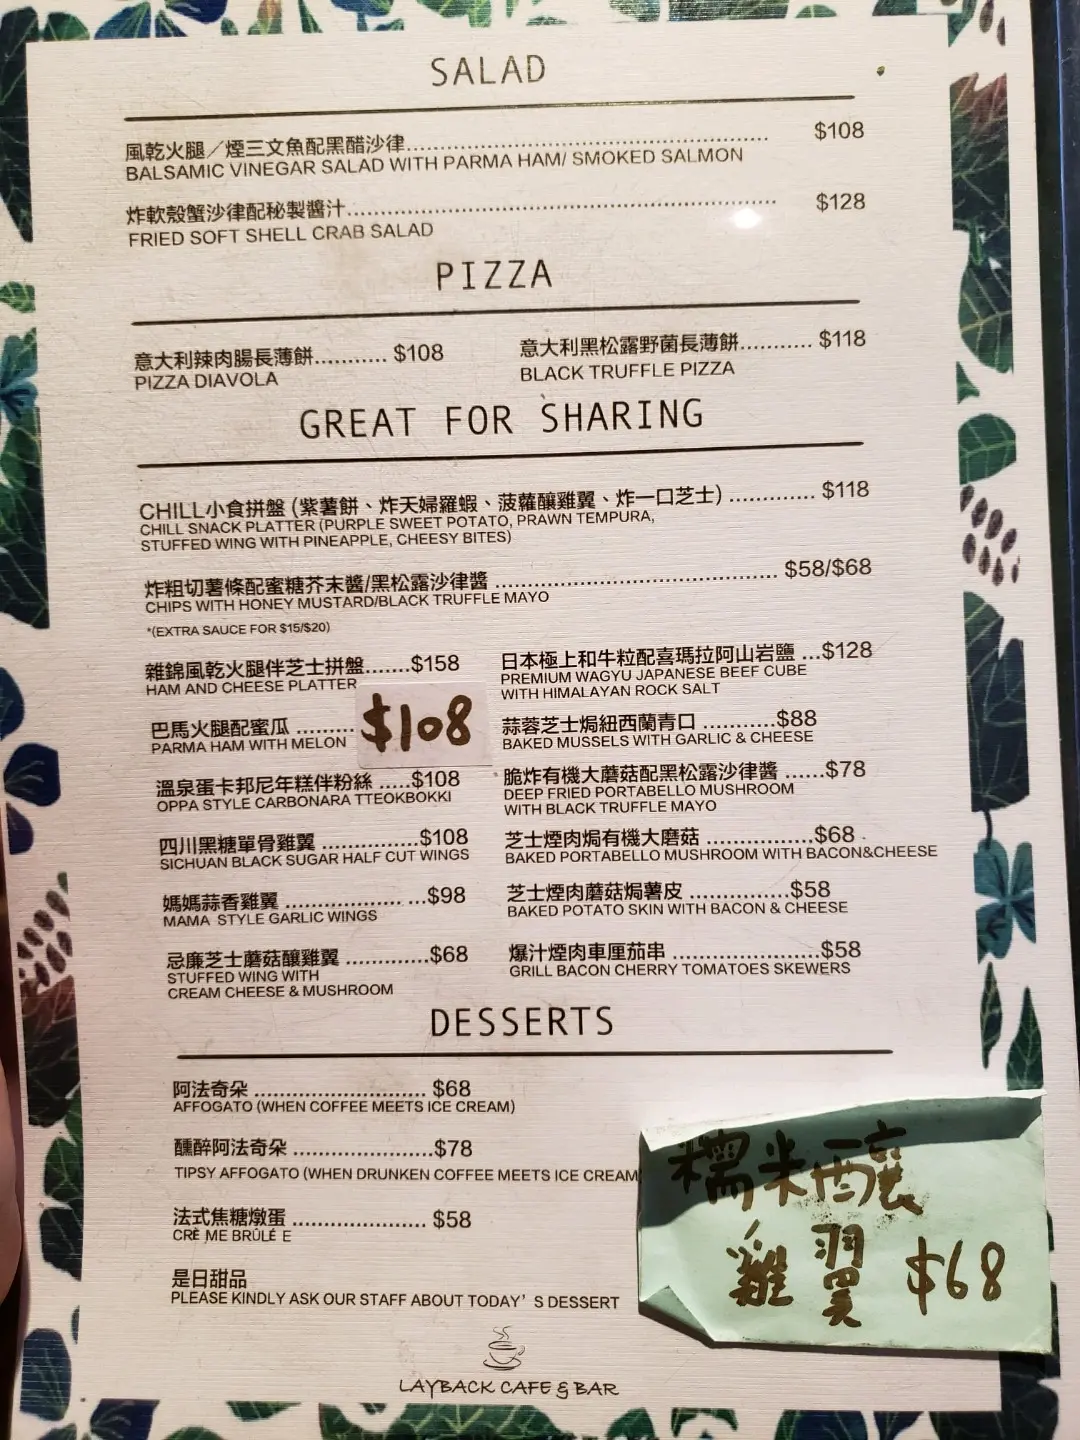 SALAD
風乾火腿／煙三文魚配黑醋沙律........................................................ $108
BALSAMIC VINEGAR SALAD WITH PARMA HAM/ SMOKED SALMON
炸軟殼蟹沙律配秘製醬汁................................................................. $128
FRIED SOFT SHELL CRAB SALAD
PIZZA
意大利辣肉腸長薄餅........... $108
PIZZA DIAVOLA
意大利黑松露野菌長薄餅........... $118
BLACK TRUFFLE PIZZA
GREAT FOR SHARING
CHILL小食拼盤 (紫薯餅、炸天婦羅蝦、菠蘿釀雞翼、炸一口芝士) ............. $118
CHILL SNACK PLATTER (PURPLE SWEET POTATO, PRAWN TEMPURA,
STUFFED WING WITH PINEAPPLE, CHEESY BITES)
炸粗切薯條配蜜糖芥末醬/黑松露沙律醬 ........................................... $58/$68
CHIPS WITH HONEY MUSTARD/BLACK TRUFFLE MAYO
*(EXTRA SAUCE FOR $15/$20)
雜錦風乾火腿伴芝士拼盤.......$158
HAM AND CHEESE PLATTER
巴馬火腿配蜜瓜 ......... $108
PARMA HAM WITH MELON
溫泉蛋卡邦尼年糕伴粉絲 .....$108
OPPA STYLE CARBONARA TTEOKBOKKI
四川黑糖單骨雞翼 ..............$108
SICHUAN BLACK SUGAR HALF CUT WINGS
媽媽蒜香雞翼 ................... ...$98
MAMA STYLE GARLIC WINGS
忌廉芝士蘑菇釀雞翼 .............$68
STUFFED WING WITH
CREAM CHEESE & MUSHROOM
日本極上和牛粒配喜瑪拉阿山岩鹽 ...$128
PREMIUM WAGYU JAPANESE BEEF CUBE
WITH HIMALAYAN ROCK SALT
蒜蓉芝士焗紐西蘭青口 ...........$88
BAKED MUSSELS WITH GARLIC & CHEESE
脆炸有機大蘑菇配黑松露沙律醬 ......$78
DEEP FRIED PORTABELLO MUSHROOM
WITH BLACK TRUFFLE MAYO
芝士煙肉焗有機大磨菇 ...............$68
BAKED PORTABELLO MUSHROOM WITH BACON&CHEESE
芝士煙肉蘑菇焗薯皮 ..............$58
BAKED POTATO SKIN WITH BACON & CHEESE
爆汁煙肉車厘茄串 .....................$58
GRILL BACON CHERRY TOMATOES SKEWERS
DESSERTS
阿法奇朵 ........................... $68
AFFOGATO (WHEN COFFEE MEETS ICE CREAM)
醺醉阿法奇朵 ......................$78
TIPSY AFFOGATO (WHEN DRUNKEN COFFEE MEETS ICE CREAM
法式焦糖燉蛋 ..................... $58
CRÈ ME BRÛLÉ E
是日甜品
PLEASE KINDLY ASK OUR STAFF ABOUT TODAY’S DESSERT
糯米釀
雞翼 $68
LAYBACK CAFE & BAR